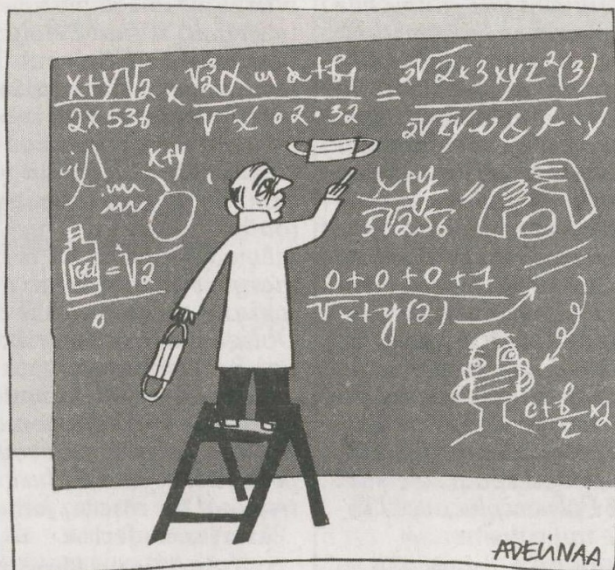 x+y√2 / 2x536 x √2³ α a+b1 / √x 02•32 = 2√2x3xyz²(3) / 2√xy
x+y
x+y / 5√256 =
GEL = √2 / 0
0+0+0+1 / √x+y(2)
c+b / 2 x2
ADELINAA